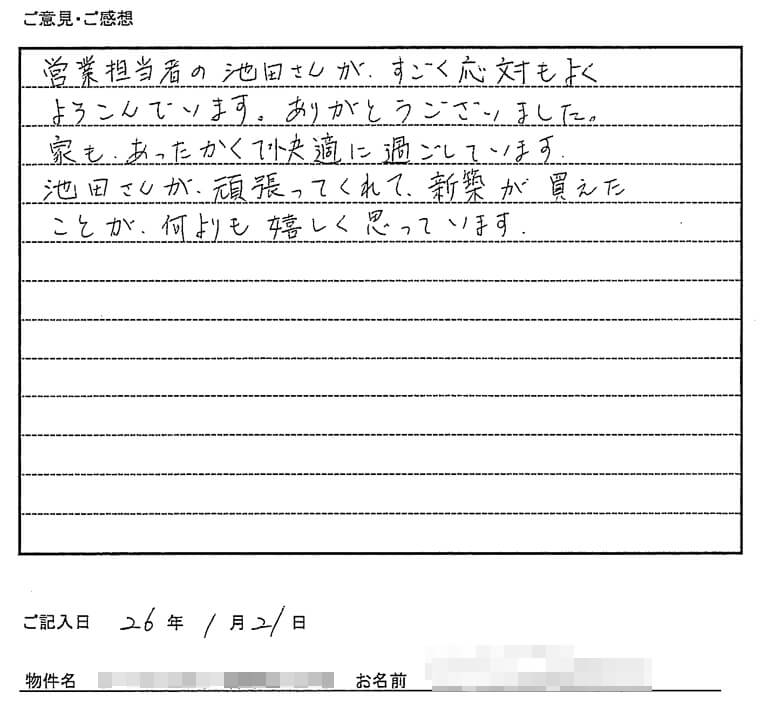 ご意見・ご感想
営業担当者の池田さんが、すごく応対もよく
よろこんでいます。ありがとうございました。
家も、あったかくて快適に過ごしています.
池田さんが、頑張ってくれて、新築が買えた
ことが、何よりも嬉しく思っています.
ご記入日 26年1月21日
物件名 お名前